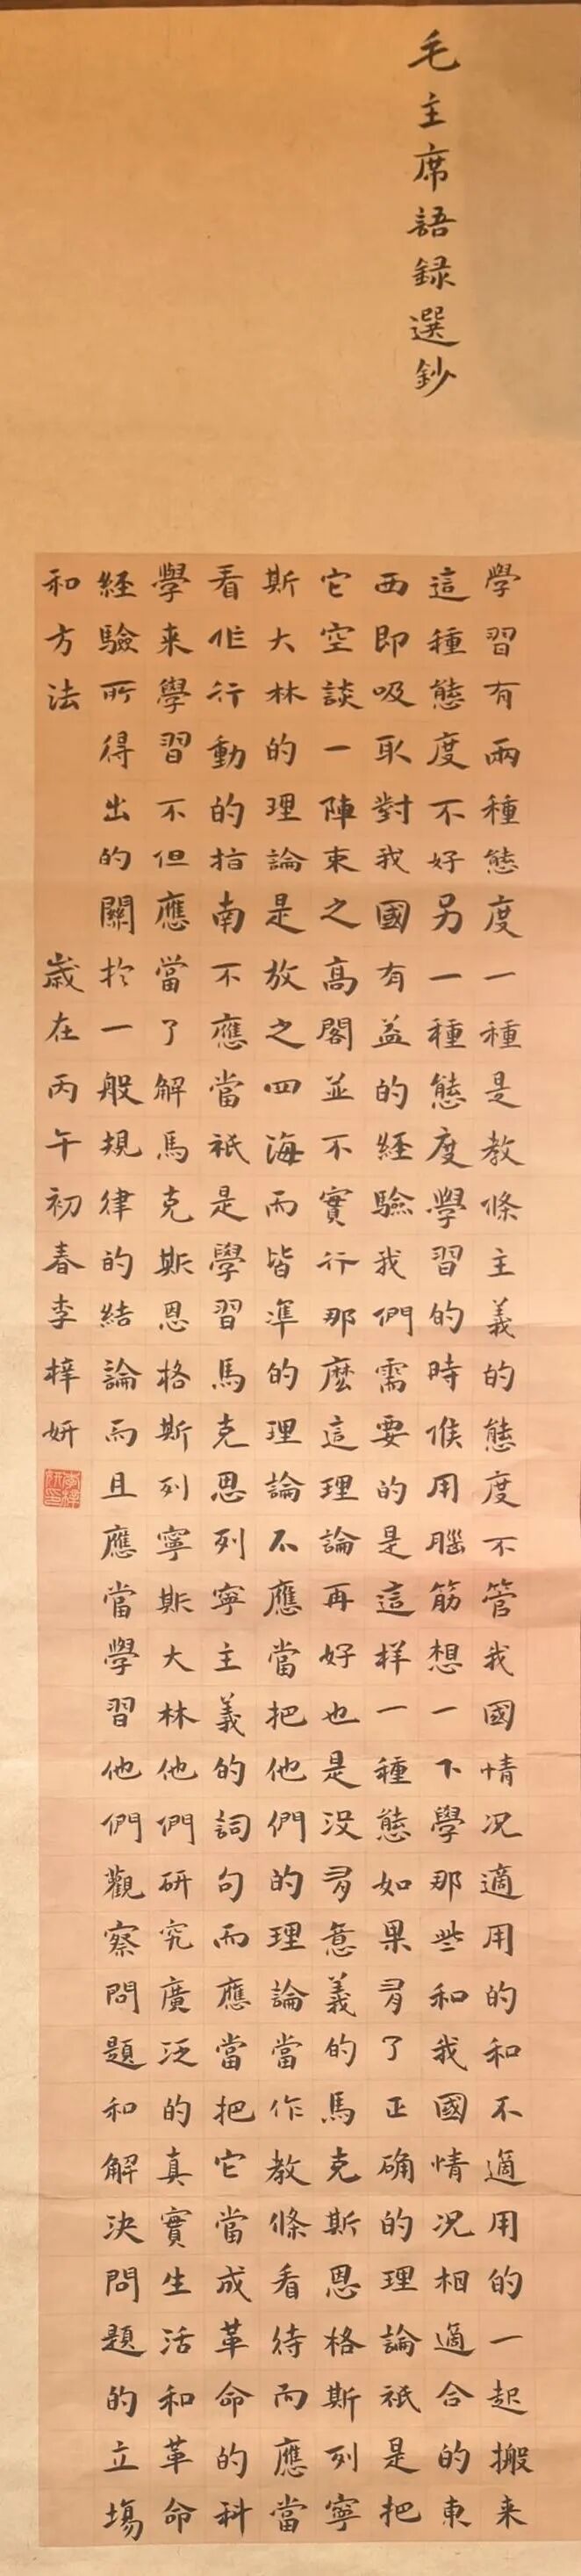 毛主席語録選鈔
學習有兩種態度一種是教條主義的態度不管我國情况適用的和不適用的一起搬来
這種態度不好另一種態度學習的時候用腦筋想一下學那些和我國情况相適合的東
西即吸取對我國有益的経驗我們需要的是這样一種態如果有了正确的理論衹是把
它空談一陣束之高閣並不實行那麼這理論再好也是没有意義的馬克斯恩格斯列寧
斯大林的理論是放之四海而皆準的理論不應當把他們的理論當作教條看待而應當
看作行動的指南不應當衹是學習馬克思列寧主義的詞句而應當把它當成革命的科
學来學習不但應當了解馬克斯恩格斯列寧斯大林他們研究廣泛的真實生活和革命
経驗所得出的關於一般規律的結論而且應當學習他們觀察問題和解決問題的立場
和方法 歳在丙午初春李梓妍
李梓妍印